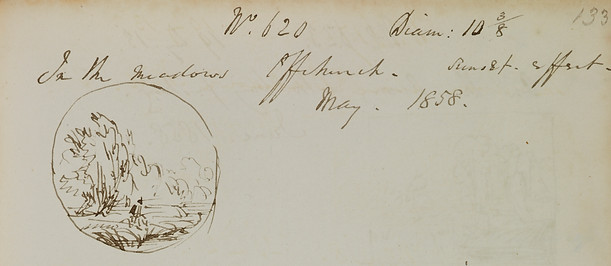 No. 620 Diam: 10 3/8 133
In the meadows Offchurch. sunset effect.
May. 1858.